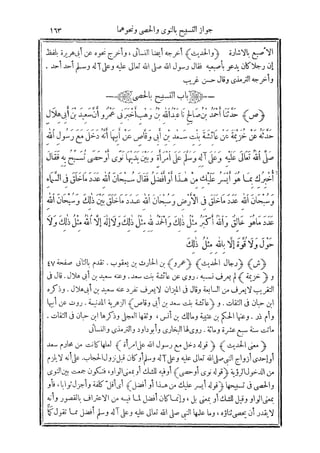 جواز التسبيح بالنوى والحصى ونحوهما ١٦٣
الاصبع بالاشارة (والحديث) أخرجه أيضا النسائى، وأخرج نحوه عن أبى هريرة بلفظ
إن رجلا كان يدعو بأصبعيه فقال رسول الله صلى الله تعالى عليه وعلى آله وسلم أحد أحد .
وأخرجه الترمذى وقال حسن غريب
باب التسبيح بالحصى
(ص) حَدَّثَنَا أَحْمَدُ بْنُ صَالِحٍ نَا عَبْدُ اللهِ بْنُ وَهْبٍ أَخْبَرَنِى عَمْرٌو أَنَّ سَعِيدَ بْنَ أَبِى هِلَالٍ
حَدَّثَهُ عَنْ خُزَيْمَةَ عَنْ عَائِشَةَ بِنْتِ سَعْدِ بْنِ أَبِى وَقَّاصٍ عَنْ أَبِيهَا أَنَّهُ دَخَلَ مَعَ رَسُولِ اللهِ
صَلَّى اللهُ تَعَالَى عَلَيْهِ وَعَلَى آلِهِ وَسَلَّمَ عَلَى امْرَأَةٍ وَبَيْنَ يَدَيْهَا نَوًى أَوْ حَصًى تُسَبِّحُ بِهِ فَقَالَ
أُخْبِرُكِ بِمَا هُوَ أَيْسَرُ عَلَيْكِ مِنْ هَذَا أَوْ أَفْضَلُ فَقَالَ سُبْحَانَ اللهِ عَدَدَ مَا خَلَقَ فِى السَّمَاءِ
وَسُبْحَانَ اللهِ عَدَدَ مَا خَلَقَ فِى الْأَرْضِ وَسُبْحَانَ اللهِ عَدَدَ مَا خَلَقَ بَيْنَ ذَلِكَ وَسُبْحَانَ اللهِ
عَدَدَ مَا هُوَ خَالِقٌ وَاللهُ أَكْبَرُ مِثْلُ ذَلِكَ وَالْحَمْدُ لِلهِ مِثْلُ ذَلِكَ وَلَا إِلَهَ إِلَّا اللهُ مِثْلُ ذَلِكَ وَلَا
حَوْلَ وَلَا قُوَّةَ إِلَّا بِاللهِ مِثْلُ ذَلِكَ
(ش) (رجال الحديث) (عمرو) بن الحارث بن يعقوب . تقدم بالثانى صفحة ٤٧
و (خزيمة) لم يعرف نسبه . روى عن عائشة بنت سعد . وعنه سعيد بن أبى هلال . قال فى
التقريب لا يعرف من السابعة وقال فى الميزان لا يعرف تفرد عنه سعيد بن أبى هلال . وذكره
ابن حبان فى الثقات . و (عائشة بنت سعد بن أبى وقاص) الزهرية المدنية . روت عن أبيها
وأم ذر . وعنها الحكم بن عتيبة ومالك بن أنس، وثقها العجلى وذكرها ابن حبان فى الثقات .
ماتت سنة سبع عشرة ومائة . روى لها البخارى وأبو داود والترمذى والنسائى
(معنى الحديث) (قوله دخل مع رسول الله على امرأة) لعلها كانت من محارم سعد
أو إحدى أزواج النبى صلى الله تعالى عليه وعلى آله وسلم أو كان قبل نزول الحجاب على أنه لا يلزم
من الدخول الرؤية (قوله نوى أو حصى) أو فيه للشك أو بمعنى الواو، فتكون جمعت بين النوى
والحصى فى تسبيحها (قوله أيسر عليك من هذا أو أفضل) أى أقل كلفة وأجزل ثوابا، فأو
بمعنى الواو وقيل للشك أو بمعنى بل، وإنما كان أفضل لما فيه من الاعتراف بالقصور وأنه
لا يقدر أن يحصى ثناؤه، وما علمها النبى صلى الله تعالى عليه وعلى آله وسلم أفضل مما تقول كما